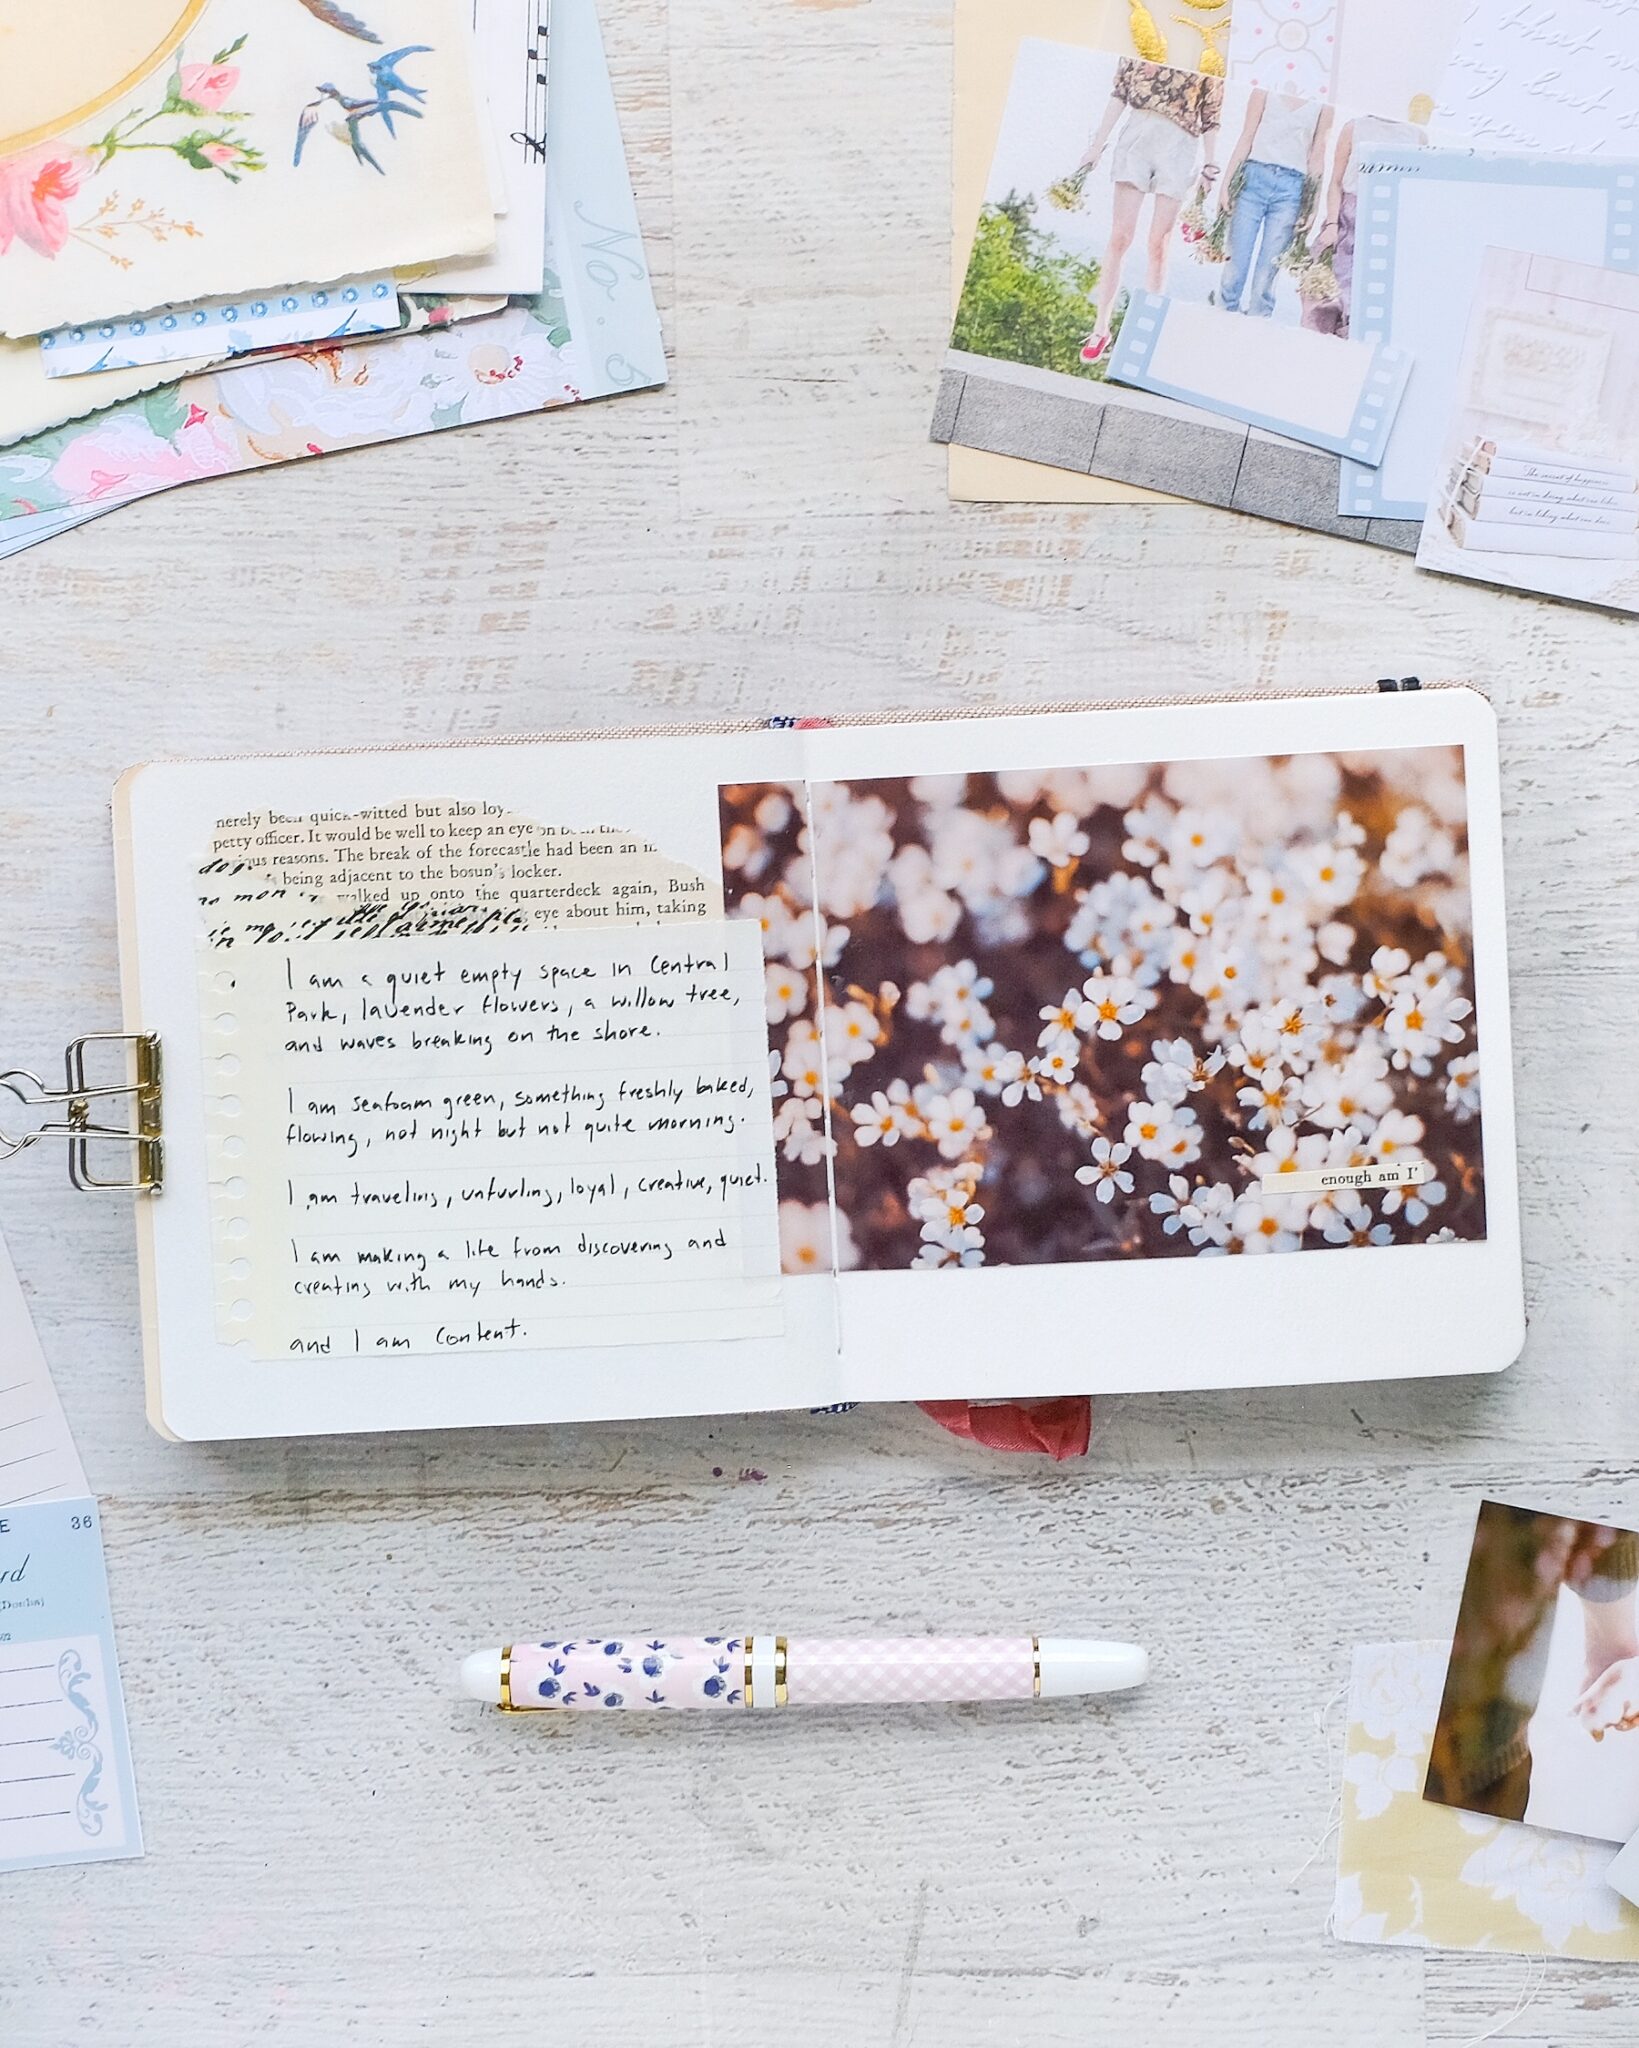 No. 5
that
but
you
The secret of happiness
is not in doing what one likes
but in liking what one does
nerely been quick-witted but also loy
petty officer. It would be well to keep an eye on
reasons. The break of the forecastle had been an
being adjacent to the bosun's locker.
walked up onto the quarterdeck again, Bush
eye about him, taking
I am a quiet empty space in Central
Park, lavender flowers, a willow tree,
and waves breaking on the shore.
I am seafoam green, something freshly baked,
flowing, not night but not quite morning.
I am traveling, unfurling, loyal, creative, quiet.
I am making a life from discovering and
creating with my hands.
and I am content.
enough am I'
E 36